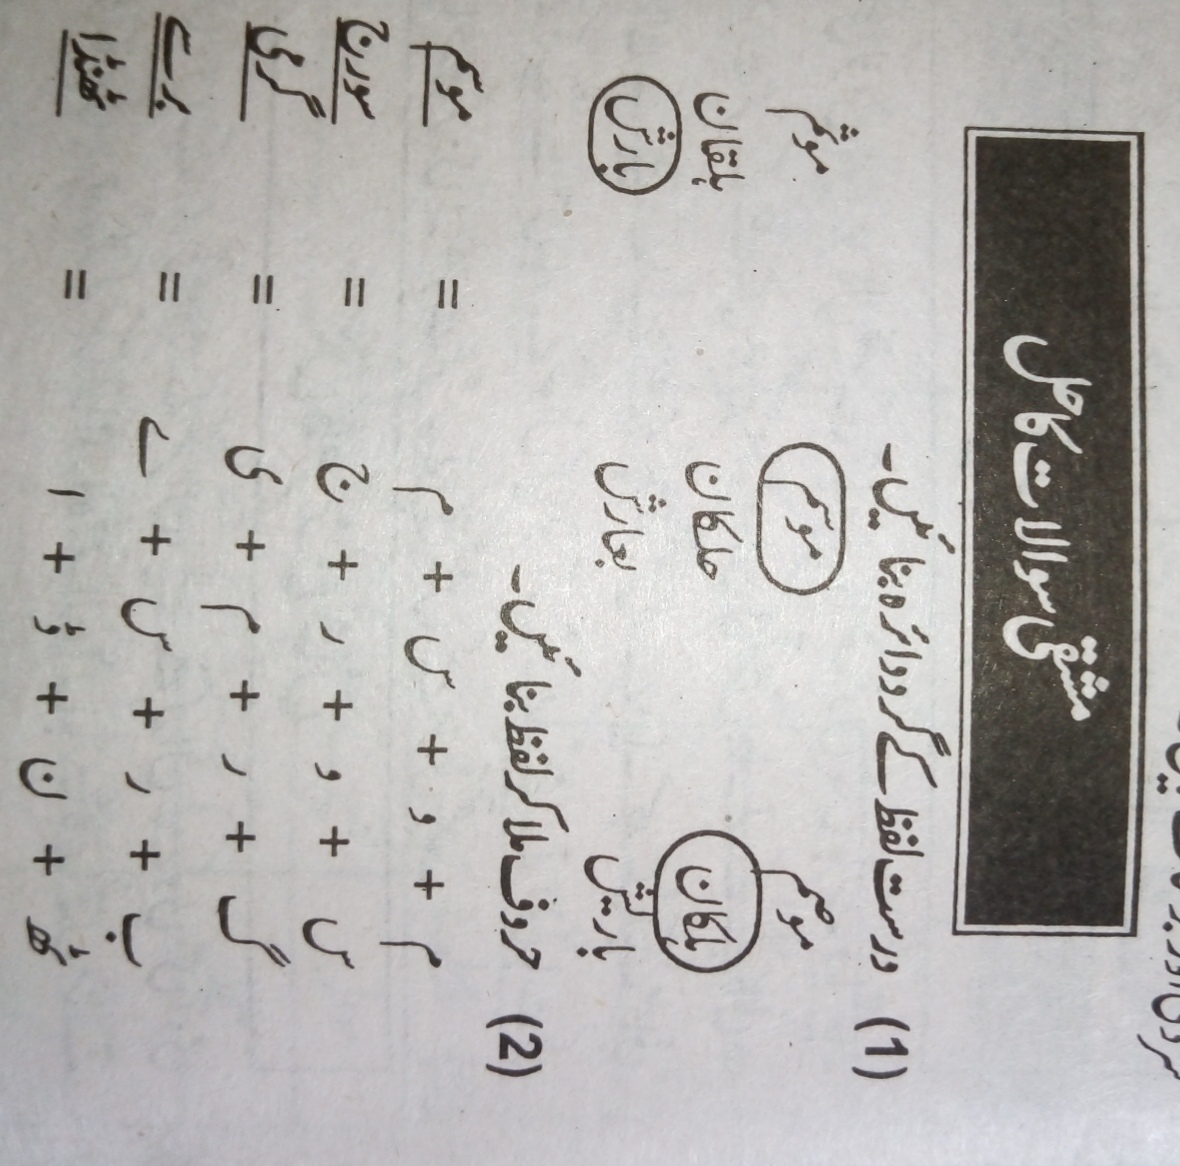 مشقی سوالات کا حل
(1) درست لفظ کے گرد دائرہ بنائیں۔
موصم موسم موثم
ہلکان حلکان ہلقان
بارث بعارش بارش
(2) حروف ملا کر لفظ بنائیں۔
م + و + س + م = موسم
س + و + ر + ج = سورج
گ + ر + م + ی = گرمی
ب + ر + س + ے = برسے
ٹھ + ن + ڈ + ا = ٹھنڈا